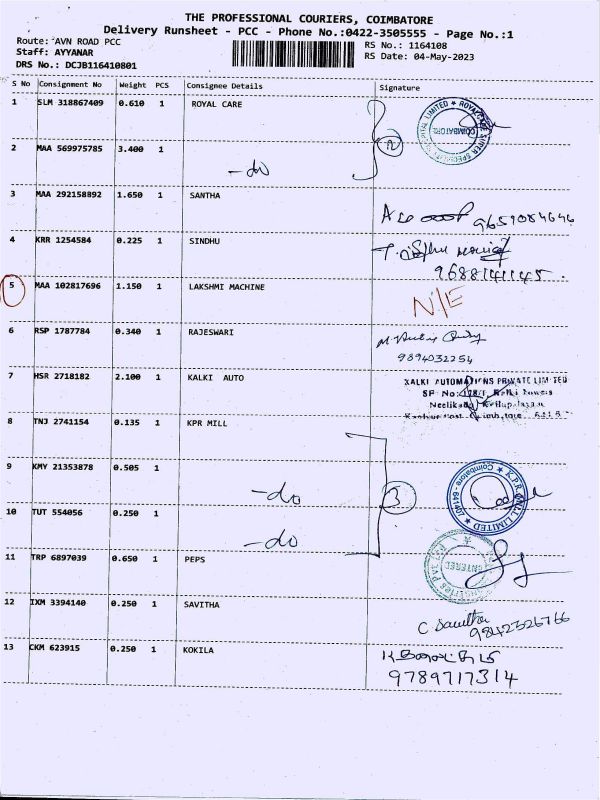 THE PROFESSIONAL COURIERS, COIMBATORE
Delivery Runsheet - PCC - Phone No.:0422-3505555 - Page No.:1
Route: AVN ROAD PCC
Staff: AYYANAR
DRS No.: DCJB116410801
RS No.: 1164108
RS Date: 04-May-2023
S No Consignment No Weight PCS Consignee Details Signature
1 SLM 318867409 0.610 1 ROYAL CARE
COIMBATORE
2 MAA 569975785 3.400 1 -do
3 MAA 292158892 1.650 1 SANTHA
4 KRR 1254584 0.225 1 SINDHU
9688141145
5 MAA 102817696 1.150 1 LAKSHMI MACHINE N/E
6 RSP 1787784 0.340 1 RAJESWARI
9894032254
7 HSR 2718182 2.100 1 KALKI AUTO
KALKI AUTOMATIONS PRIVATE LIMITED
8 TNJ 2741154 0.135 1 KPR MILL
9 KMY 21353878 0.505 1 -do 3
K.P.R. MILL LIMITED Coimbatore - 641407
10 TUT 554056 0.250 1 -do
11 TRP 6897039 0.650 1 PEPS
12 IXM 3394140 0.250 1 SAVITHA
C Savitha
9842326766
13 CKM 623915 0.250 1 KOKILA
9789717314